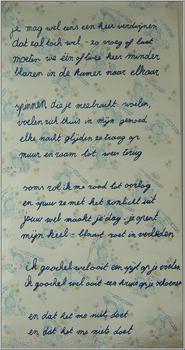 je mag wel eens een keer verdwijnen
dat zal toch wel - zo vroeg of laat
moeten we één of twee keer minder
blazen in de kamer naar elkaar
spinnen die je meebracht voelen
voelen zich thuis in mijn gemoed
elke nacht glijden ze traag op
muur en raam tot weer terug
soms rol ik me rood tot oorlog
en spuw ze met het zonlicht uit
jouw wel maakt je dag - je opent
mijn keel - blaast roet in
ik goochel wel ooit een op je
ik goochel wel ooit een kruis op je
en dat het me niets doet
en dat het me niets doet